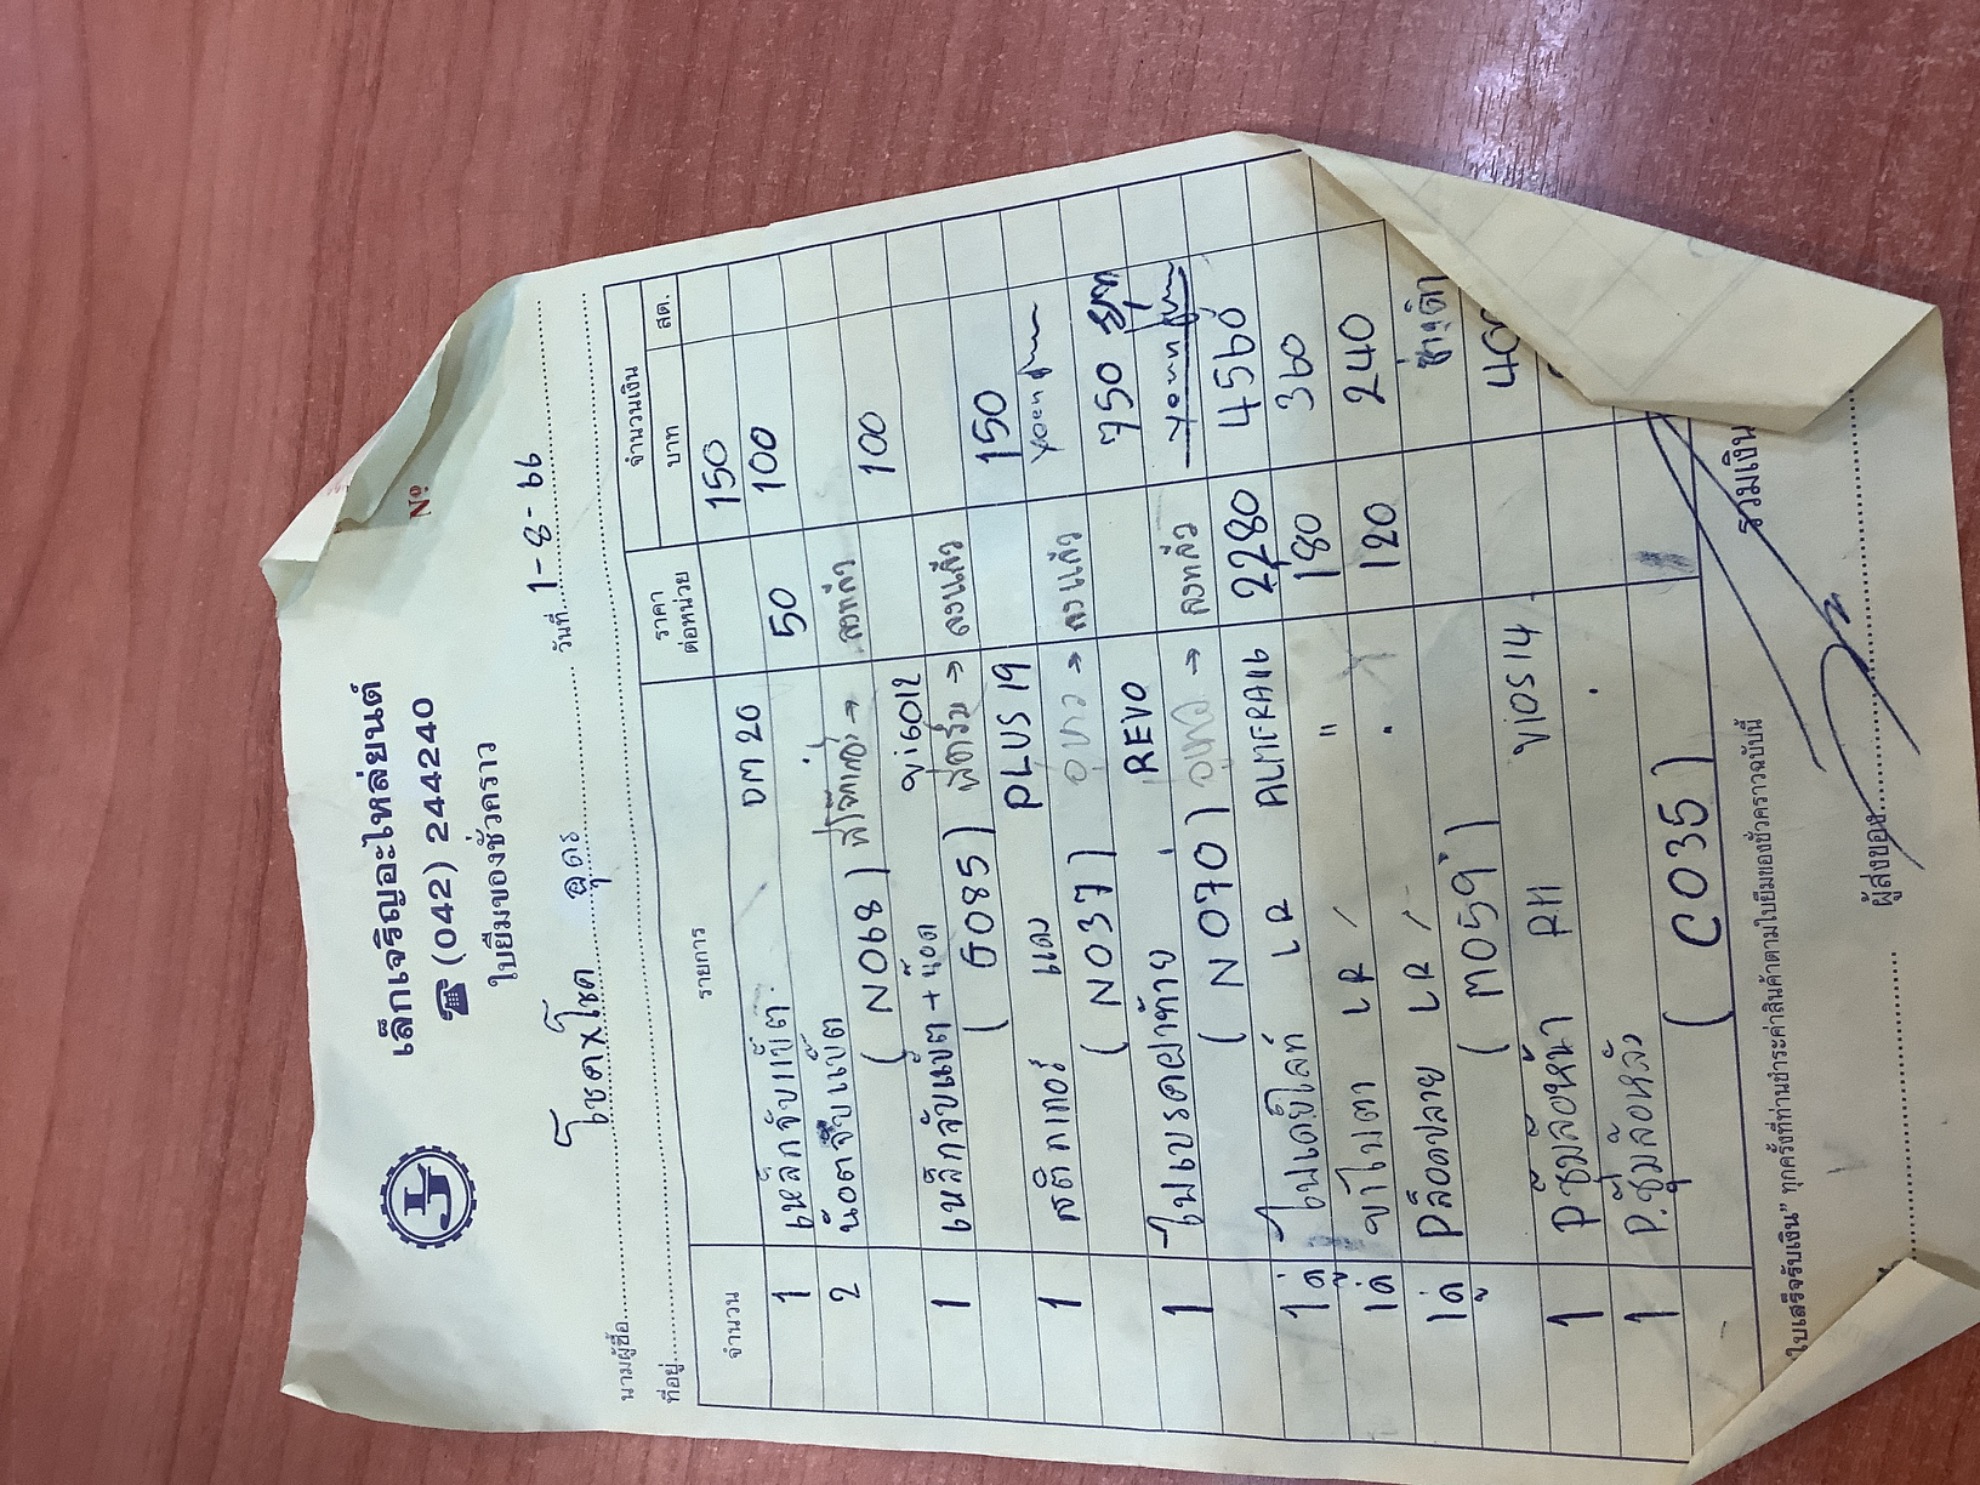 เล็กเจริญอะไหล่ยนต์
☎ (042) 244240
ใบยืมของชั่วคราว
Nº
LJ
นามผู้ซื้อ โชคxโชค อุดร วันที่ 1-8-66
ที่อยู่
จำนวน รายการ ราคาต่อหน่วย จำนวนเงิน
บาท สต.
1 เหล็กจับแบ็ต DM 20 150
2 น๊อตจับแบ็ต 50 100
(N068)
1 เหล็กจับแบ็ต + น๊อต VIGO12 100
(G085) ลงแล้ว
1 สติกเกอร์ แดง PLUS 19 150
(N037) → ลงแล้ว
1 ไฟเบรคฝาท้าย REVO 750
(N070) →
1คู่ ไฟเดย์ไลท์ LR ALMERA16 2280 4560
1คู่ ขาไฟตา LR " 180 360
1คู่ Pล็อคปลาย LR 120 240
(M059)
1 Pซุ้มล้อหน้า RH VIOS 14 400
1 P.ซุ้มล้อหลัง
(C035)
ใบเสร็จรับเงิน" ทุกครั้งที่ท่านชำระค่าสินค้าตามใบยืมของชั่วคราวฉบับนี้ รวมเงิน
ผู้ส่งของ